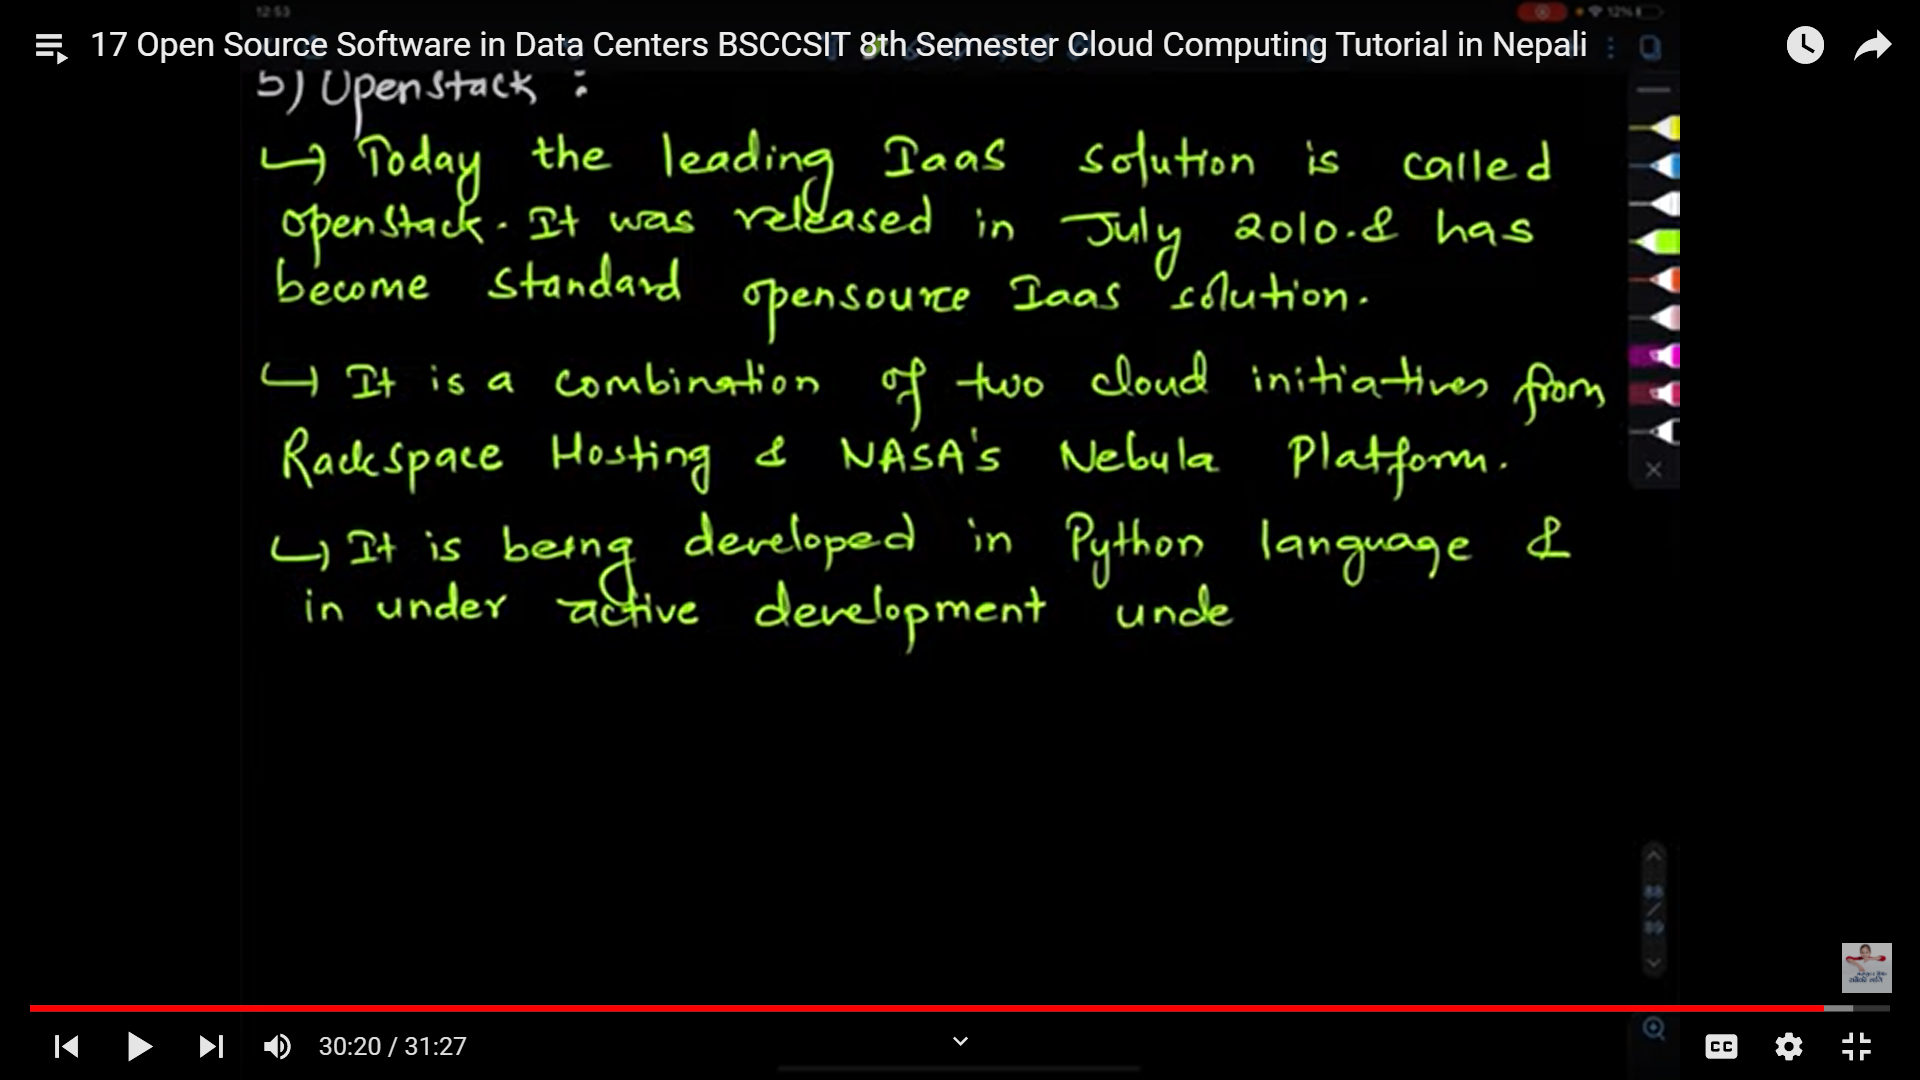 12:53
12%
17 Open Source Software in Data Centers BSCCSIT 8th Semester Cloud Computing Tutorial in Nepali
5) Openstack :
↳ Today the leading IaaS solution is called
openstack. It was released in July 2010. & has
become standard opensource Iaas solution.
↳ It is a combination of two cloud initiatives from
Rackspace Hosting & NASA's Nebula Platform.
↳ It is being developed in Python language &
in under active development unde
88
/
89
30:20 / 31:27
CC